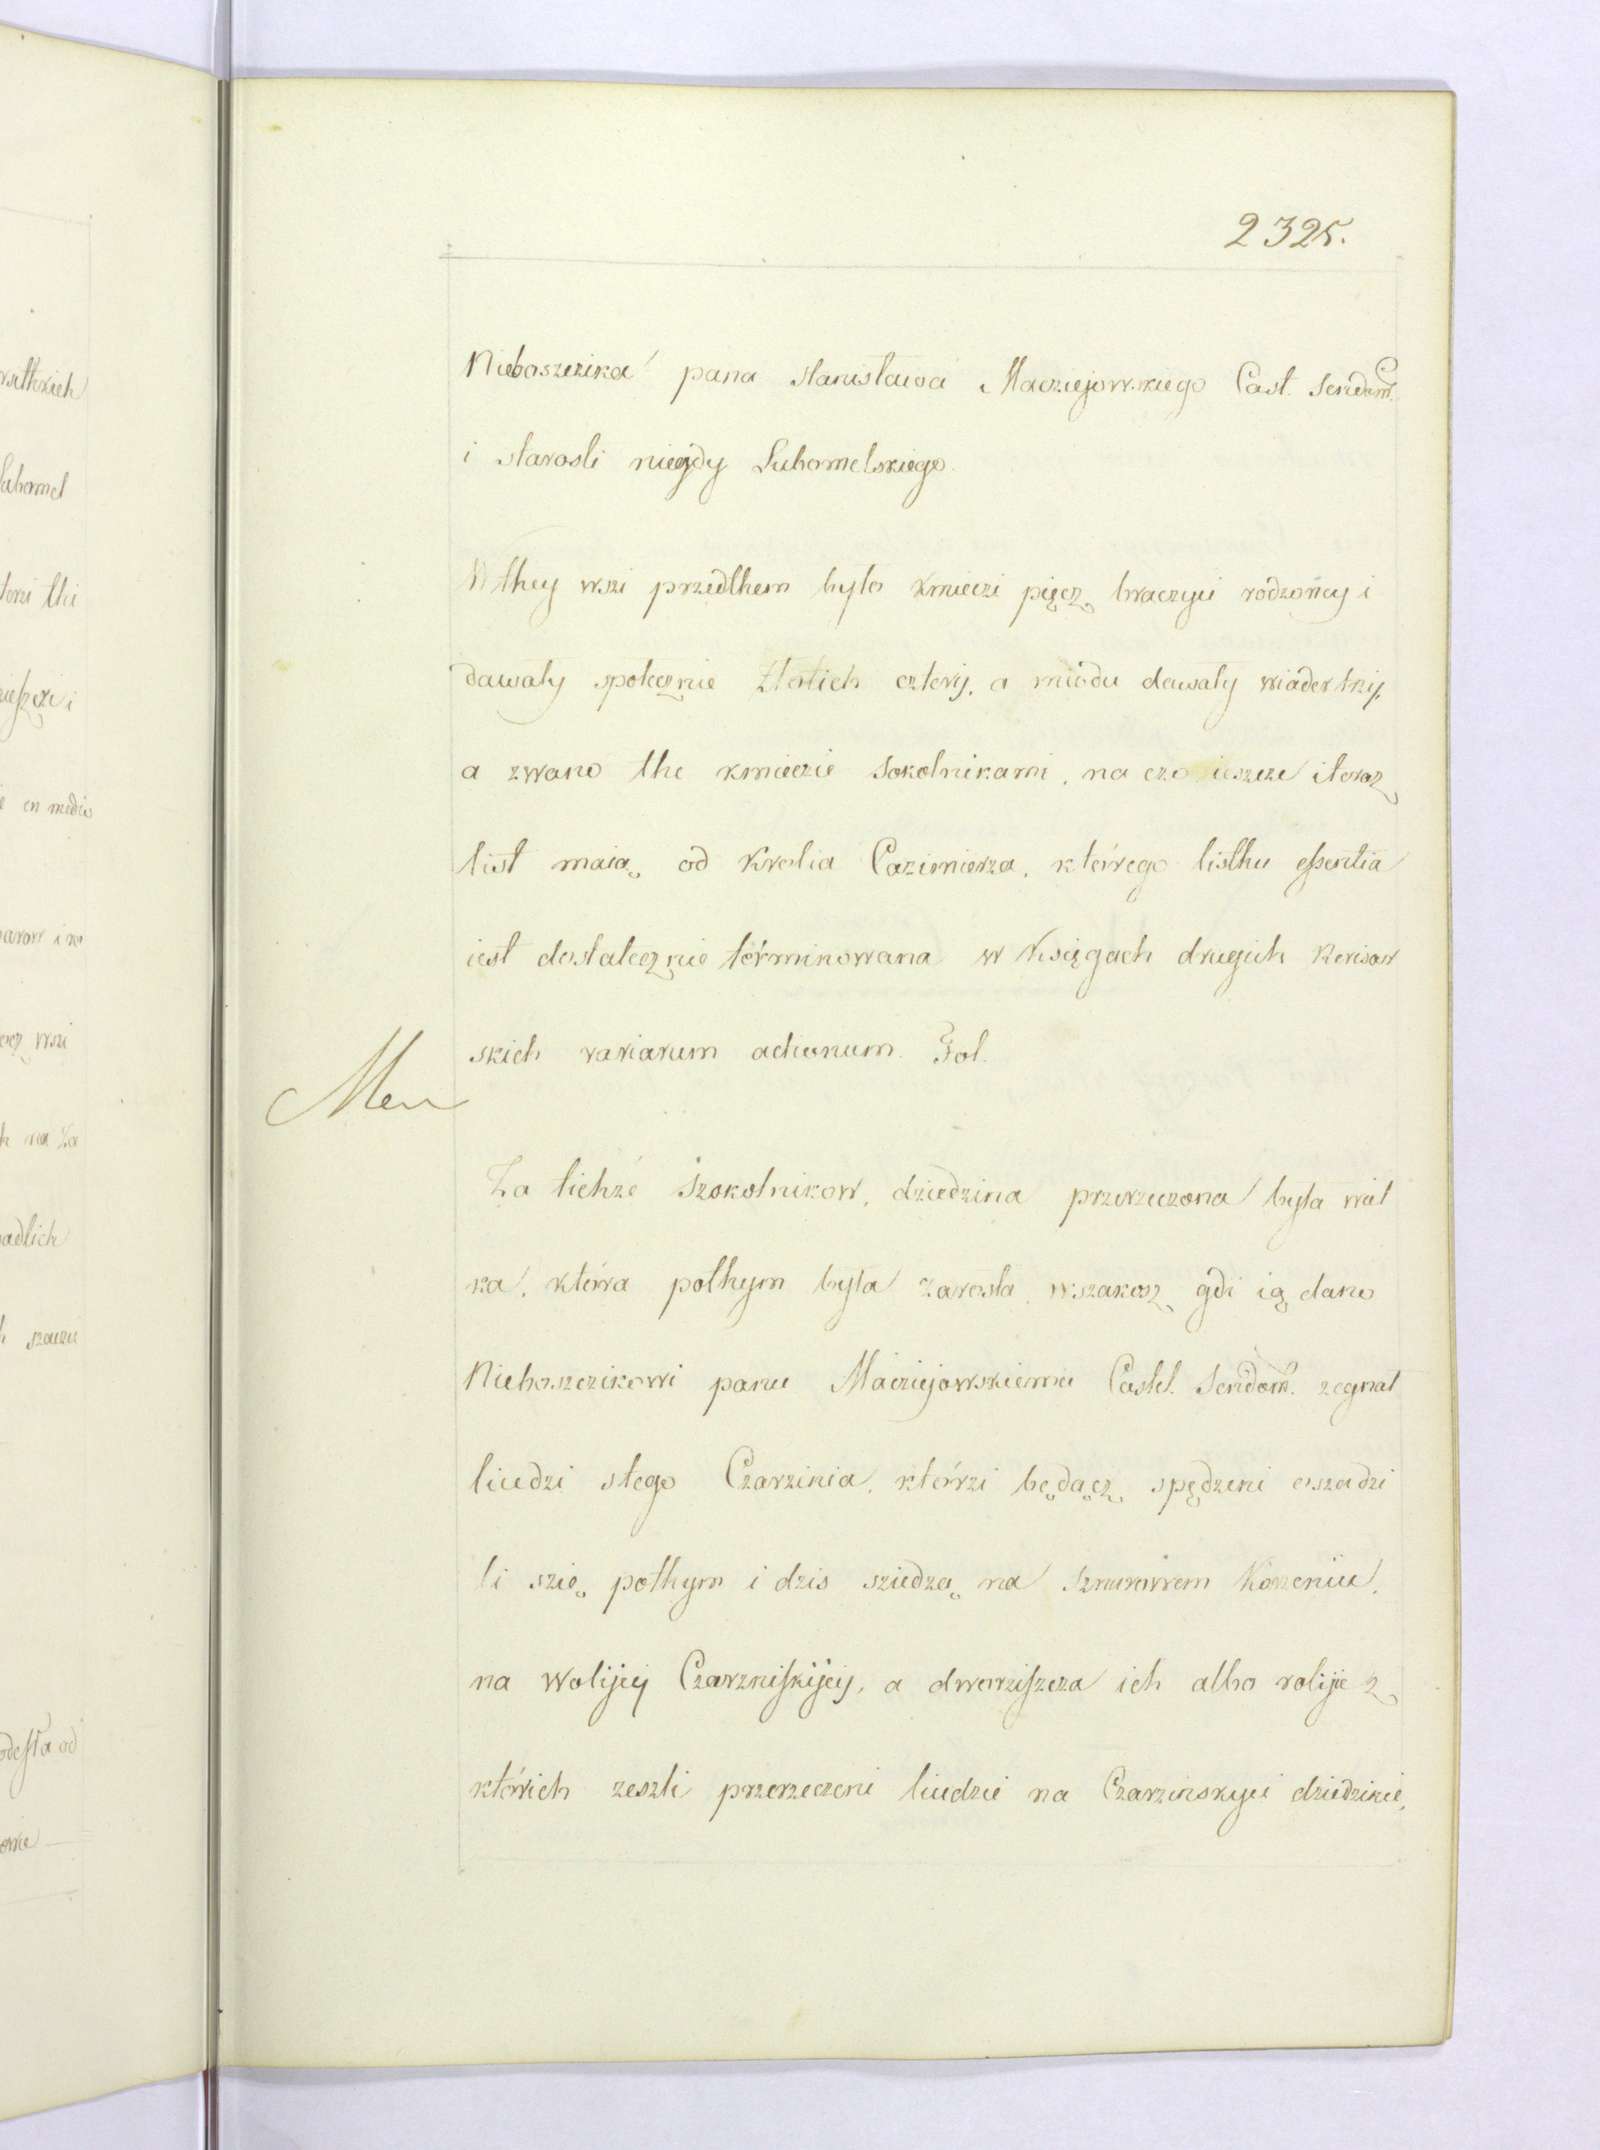 2325.
Nieboszczika pana Stanisława Maczieiowskiego Cast. Sendom.
i starosti niegdy Lubomelskiego.
W they wszi przedthem było kmieczi pięcz braczyi rodzoney i
dawały społecznie złotich cztery, a miodu dawały wiader trzy,
a zwano the kmieczie Sokolnikami, na czo ieszcze i teraz
list maią od Krolia Cazimierza, którego listhu essentia
iest dostatecznie términowana w Księgach drugich Revisor
skich variarum actionum. Fol.
Za tichże Szokolnikow, dziedzina przerzeczona była wiel
ka, która pothym była zarosła, wszakosz gdi ią dano
Nieboszczikowi panu Macziejowskiemu Castel. Sendom. zegnał
liudzi stego Czarzinia, którzi będącz spędzeni oszadzi
li szię pothym i dzis sziedzą na sznurowem Korzeniu,
na Wolijey Czarzniskijey, a dworziszcza ich albo rolije z
którich zeszli przerzeczeni liudzie na Czarzinskyei dziedzinie,
witkich
Lubomel
en medio
adlich